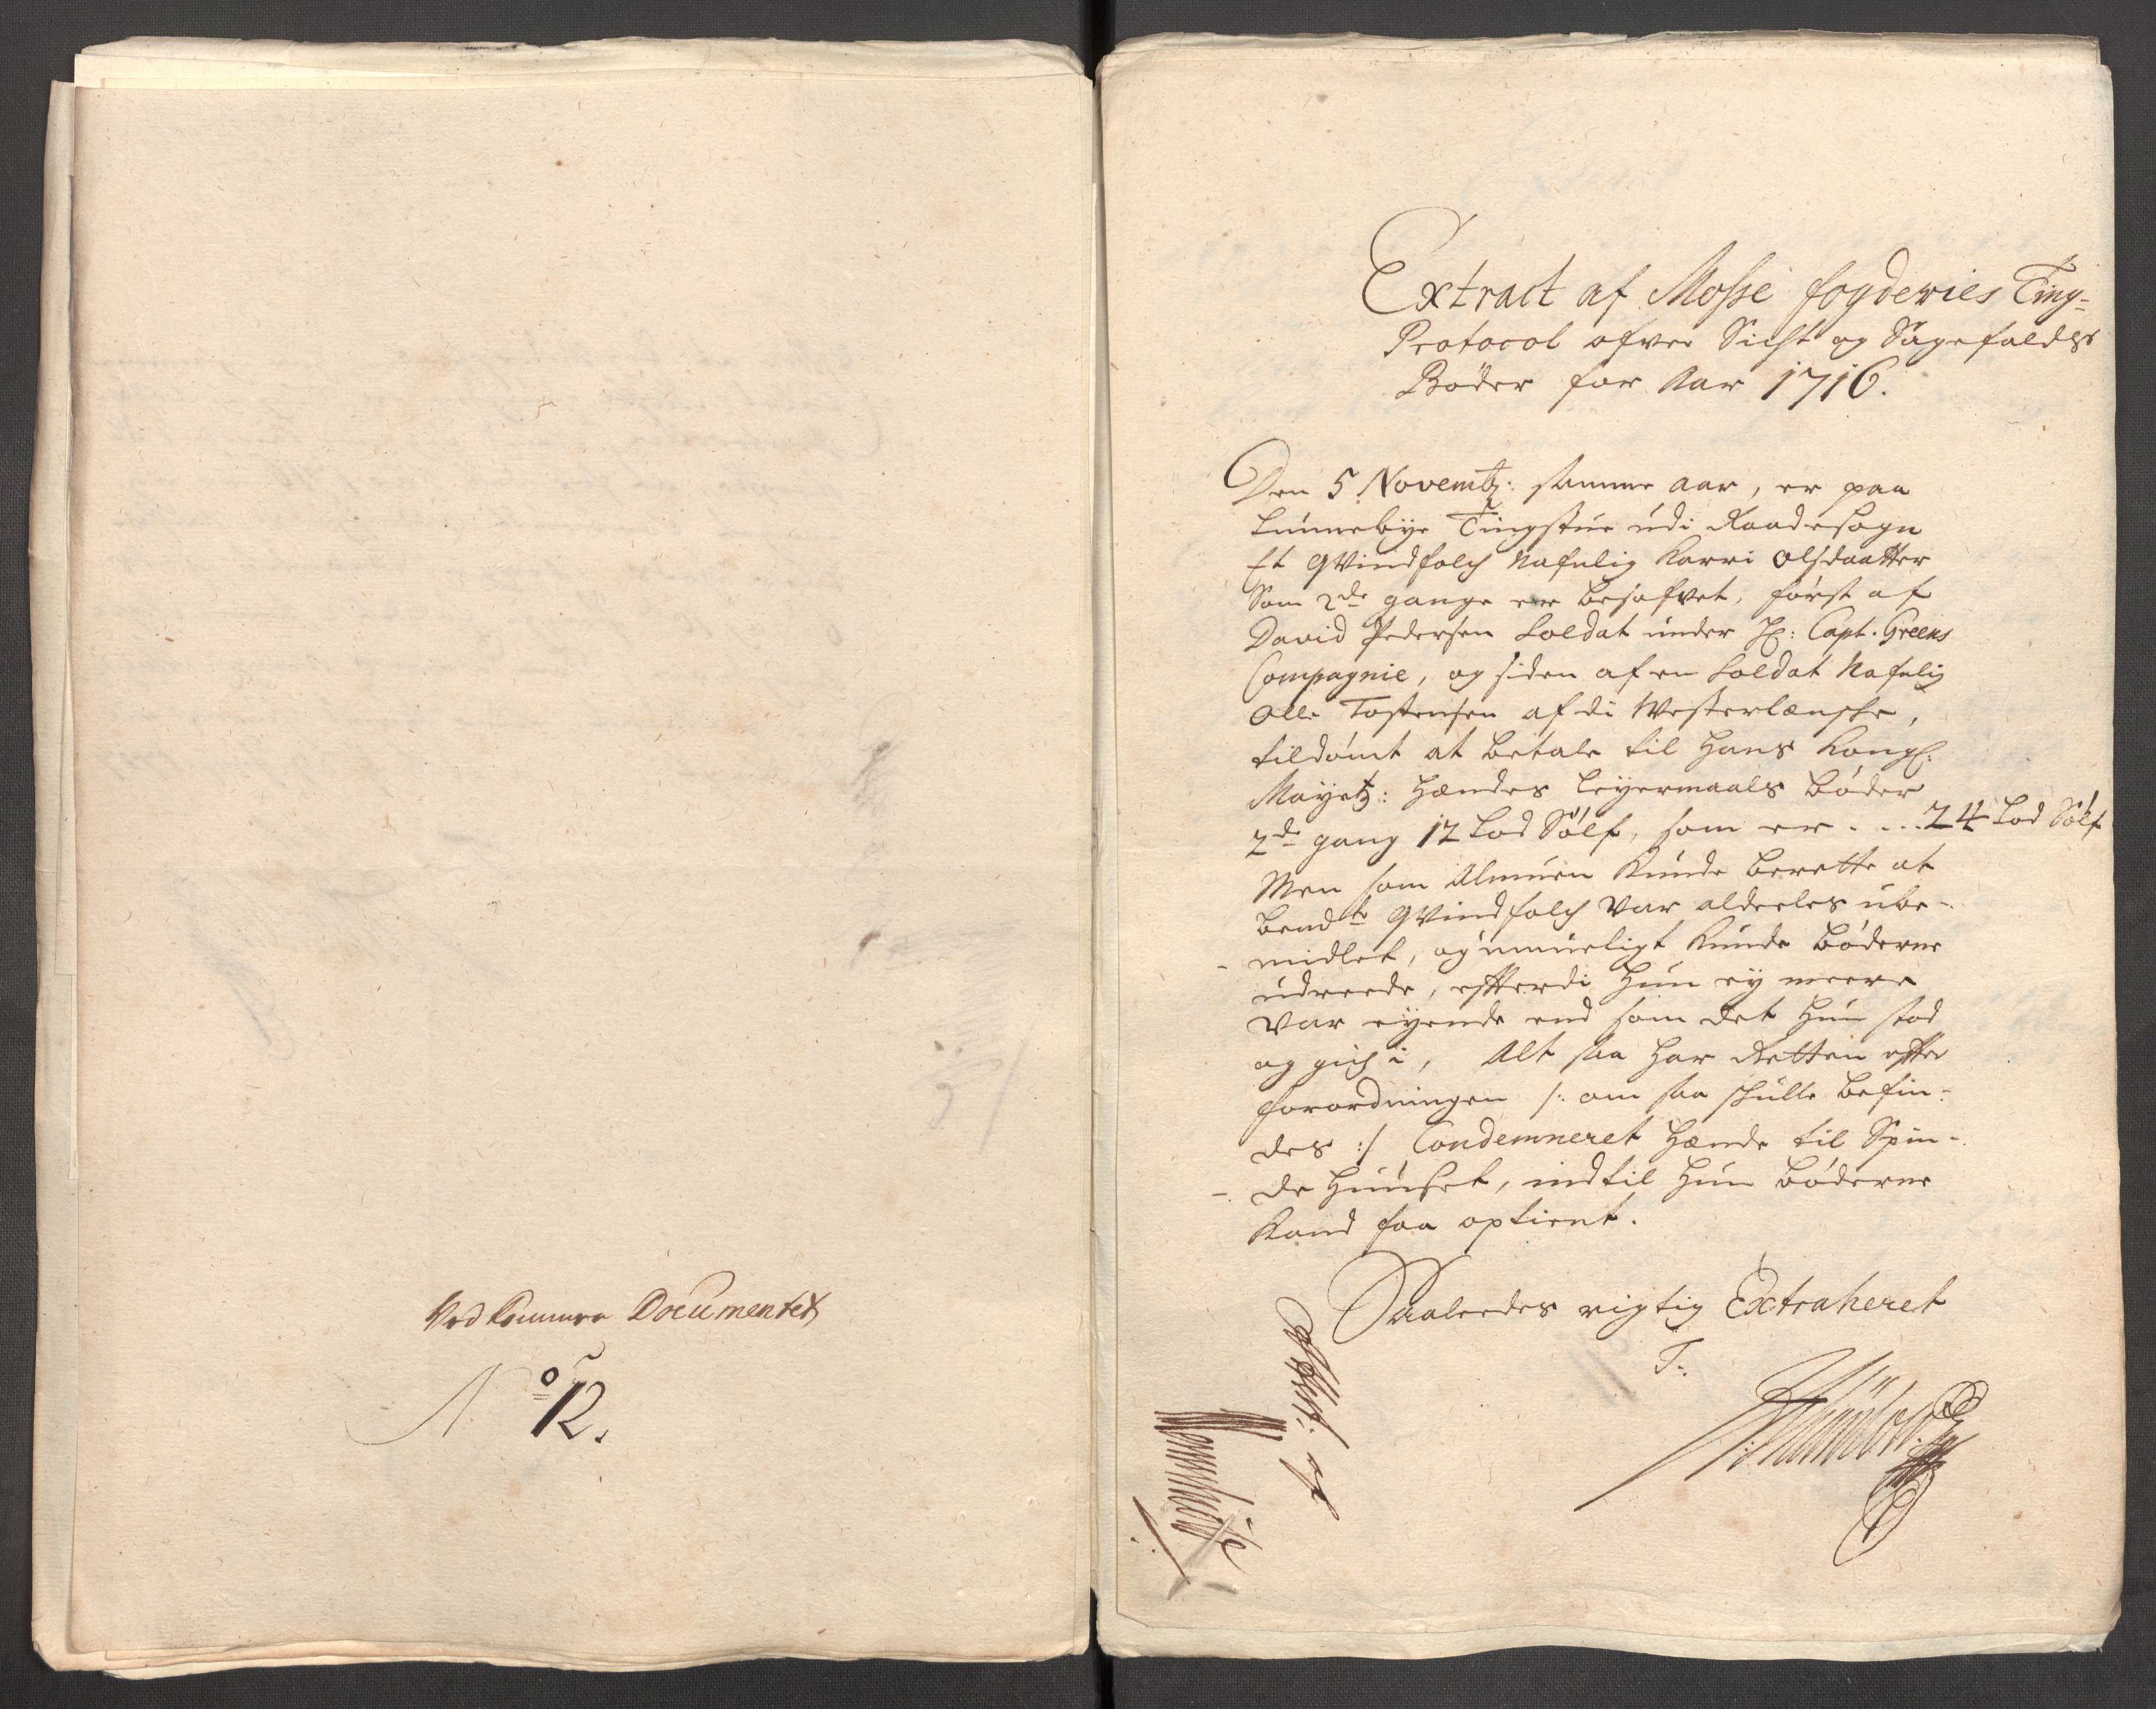 Ved kommer Documentet
No 12.
Extract af Mosse fogderies Ting-
Protocol ofver Sicht og Sagefaldss
Bøder for Aar 1716.
Den 5 Novembr: samme aar, er paa
Lunnebye Tingstue udi Raadesogn
Et Qvindfolch Nafnlig Karri Olsdaatter
Som 2de gange er besofvet, først af
David Pedersen Soldat under Hr: Capt. Greens
Compagnie, og siden af en Soldat Nafnlig
Olle Tostensen af di Westerlænske,
tildømt at betale til Hans Kongl:
Mayetz: Hændes Leyermaals bøder
2de gang 12 Lod Sølf, som er . . . 24 Lod Sølf
Men som Almuen Kunde berette at
bemdte Qvindfolch var alderles ube-
midlet, og umueligt Kunde bøderne
udreede, efterdi Hun ey meere
var eyende end som det Hun stod
og gich i, Alt saa har Retten efter
forordningen /: om saa skulle befin-
des :/ Condemneret Hænde til Spin-
de Huuset, indtil Hun bøderne
Kand faa optient.
Saaleedes rigtig Extraheret
T: